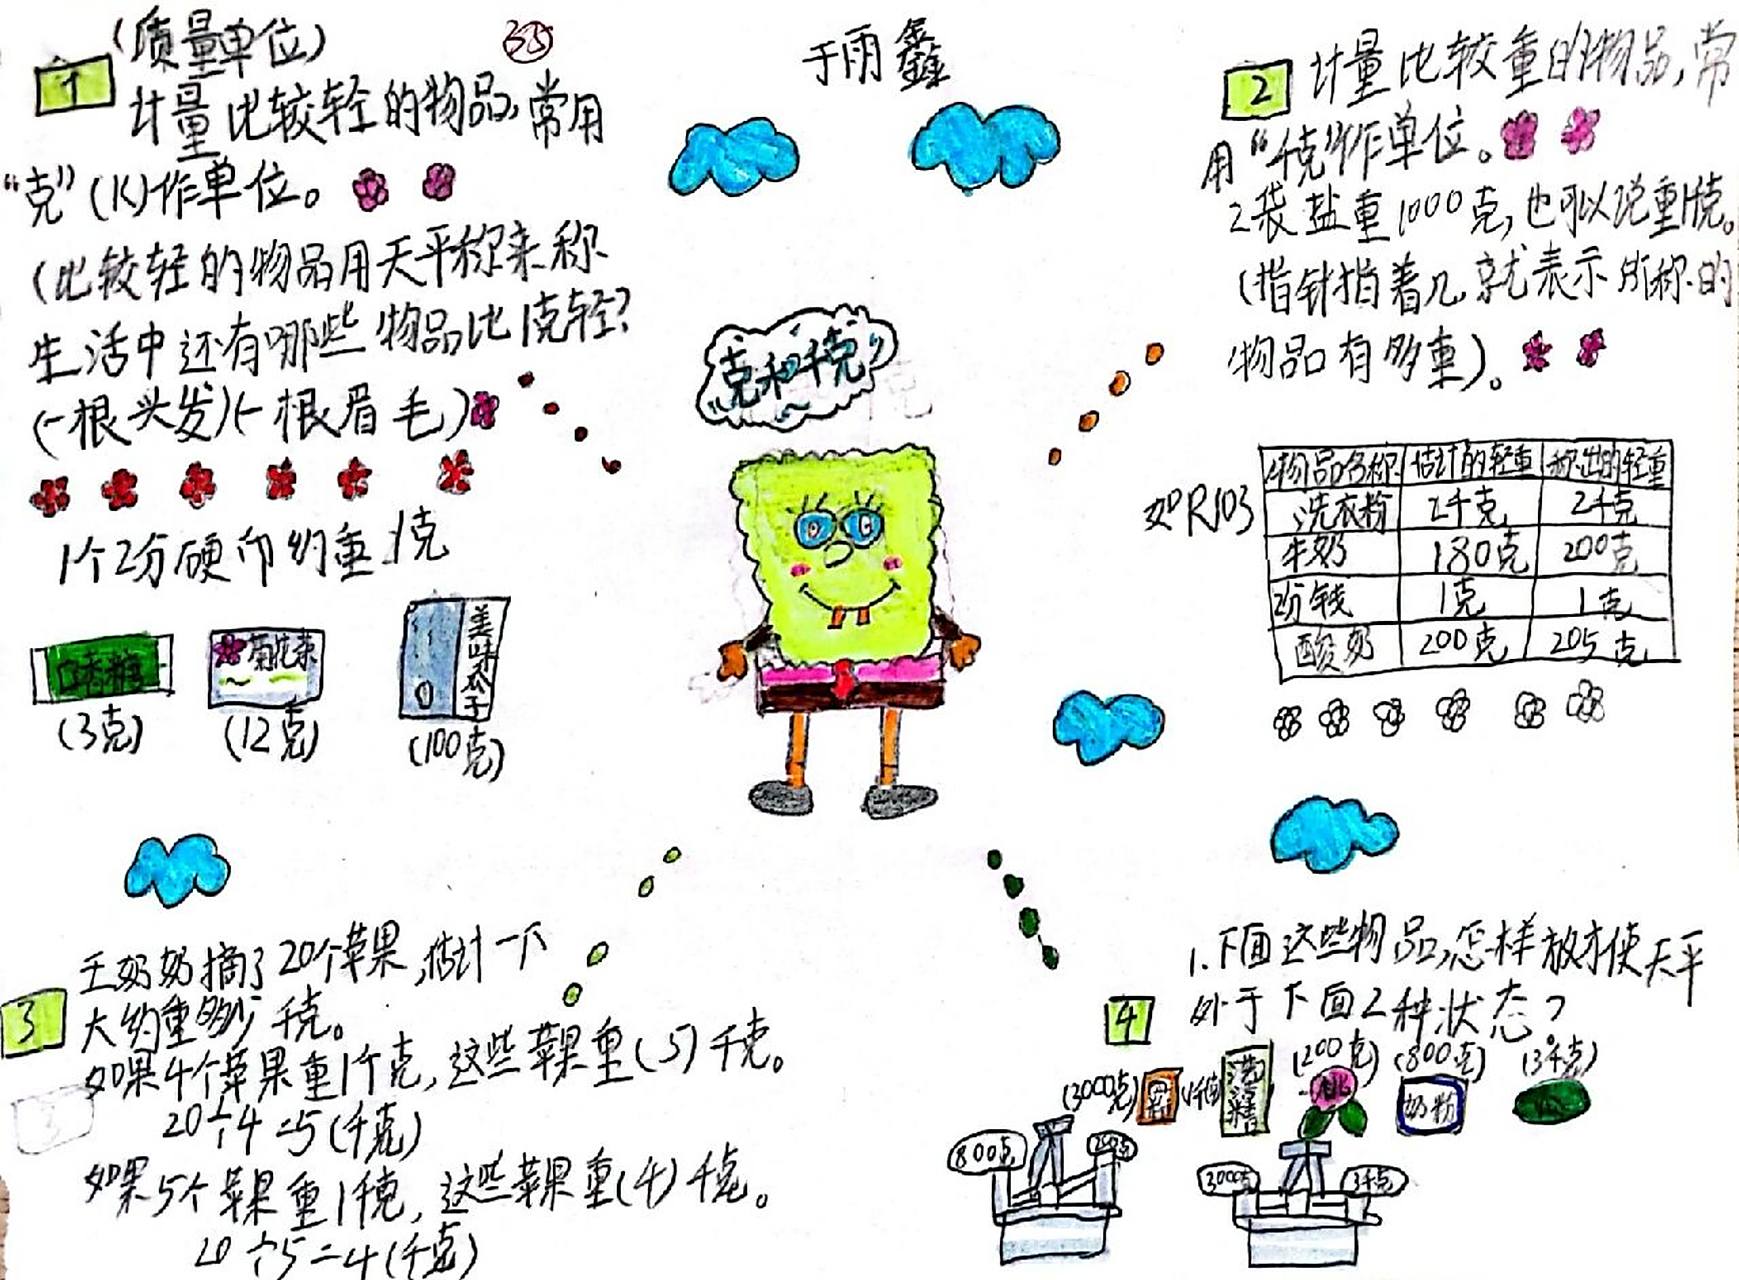 (质量单位)
35
1
计量比较轻的物品,常用
“克”(K)作单位。
(比较轻的物品用天平称来称
生活中还有哪些物品比1克轻?
(一根头发)(一根眉毛)
1个2分硬币约重1克
口香糖
菊花茶
美味瓜子
(3克)
(12克)
(100克)
于雨鑫
克和千克
2
计量比较重的物品,常
用“千克”作单位。
2袋盐重1000克,也可以说重1千克。
(指针指着几,就表示所称的
物品有多重)。
物品名称 估计的轻重 称出的轻重
洗衣粉 2千克 2千克
牛奶 180克 200克
2分钱 1克 1克
酸奶 200克 205克
3
王奶奶摘了20个苹果,估计一下
大约重多少千克。
如果4个苹果重1千克,这些苹果重(5)千克。
20÷4=5(千克)
如果5个苹果重1千克,这些苹果重(4)千克。
20÷5=4(千克)
4
1.下面这些物品,怎样放才使天平
处于下面2种状态?
(200克) (800克) (3千克)
(3000克)
洗洁精
桃
奶粉
800克
200克
3000克
3千克